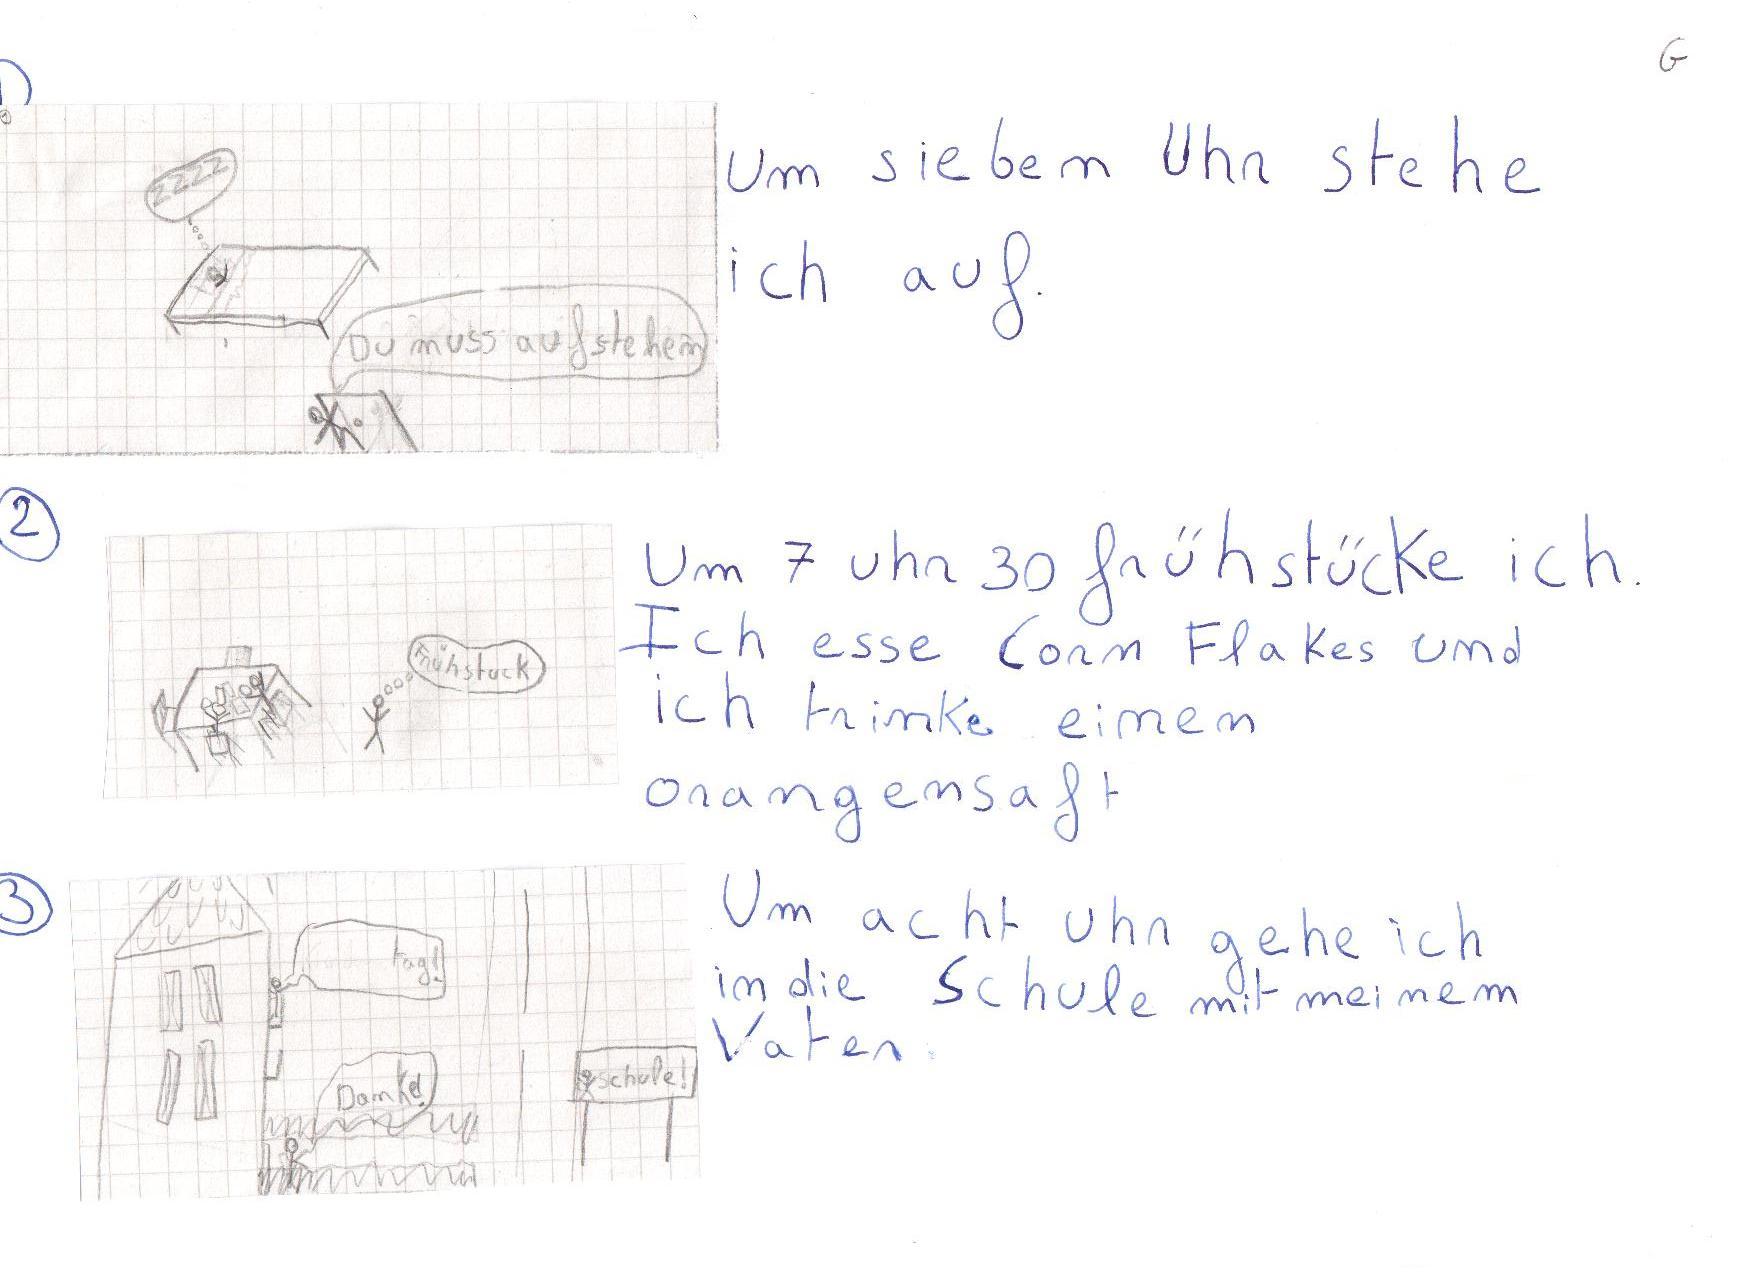 G
1
Um sieben Uhr stehe
ich auf.
zzzz
Du muss aufstehen
2
Um 7 uhr 30 frühstücke ich.
Ich esse Corn Flakes und
ich trinke einen
orangensaft
Frühstück
3
Um acht uhr gehe ich
in die Schule mit meinem
Vater.
tag!
Danke!
schule!